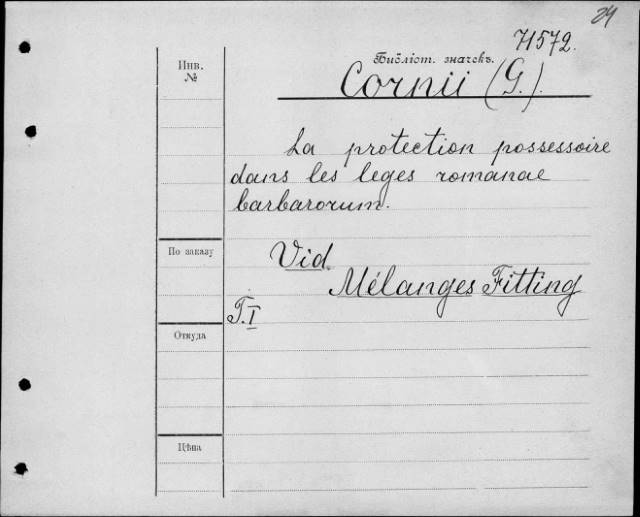 24
71572.
Инв.
№
Библіст. значекъ.
Cornii (G.).
La protection possessoire
dans les leges romanae
barbarorum.
По заказу
Vid.
Mélanges Fitting
T.I
Откуда
Цѣна